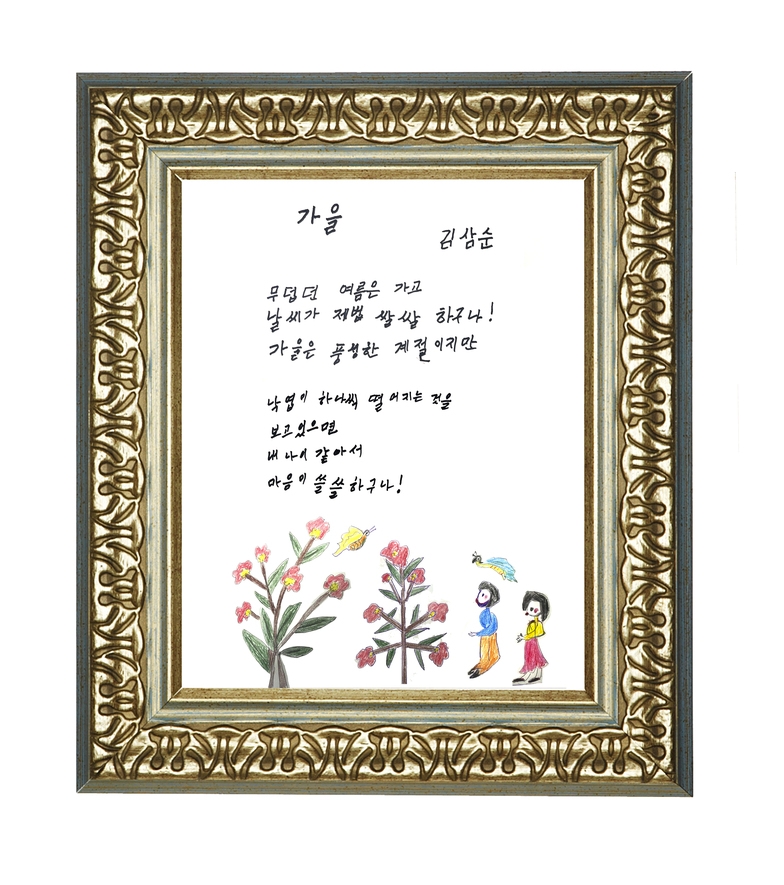 가을
김삼순
무덥던 여름은 가고
날씨가 제법 쌀쌀 하구나!
가을은 풍성한 계절이지만
낙엽이 하나씩 떨어지는 것을
보고있으면
내 나이 같아서
마음이 쓸쓸하구나!